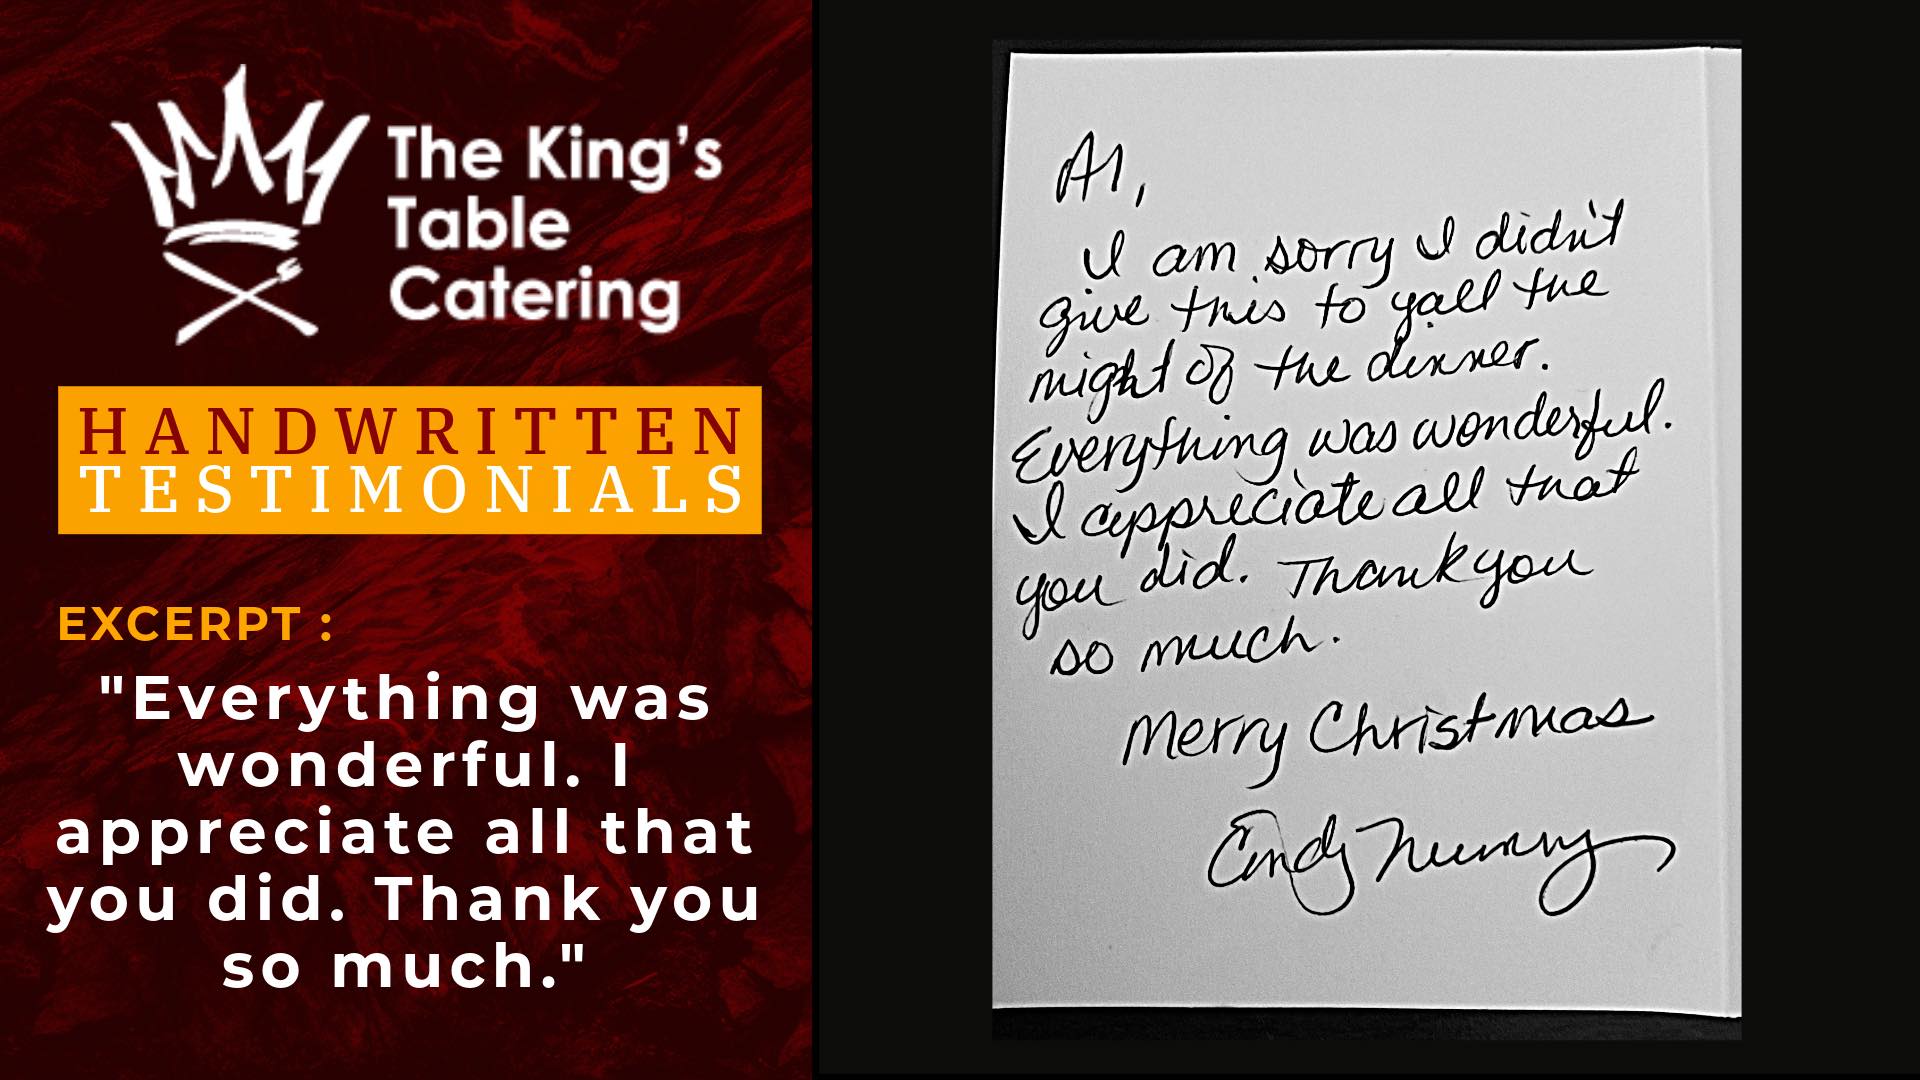 The King's
Table
Catering
HANDWRITTEN
TESTIMONIALS
EXCERPT :
"Everything was
wonderful. I
appreciate all that
you did. Thank you
so much."
Al,
I am sorry I didn't
give this to yall the
night of the dinner.
Everything was wonderful.
I appreciate all that
you did. Thank you
so much.
Merry Christmas
Cindy